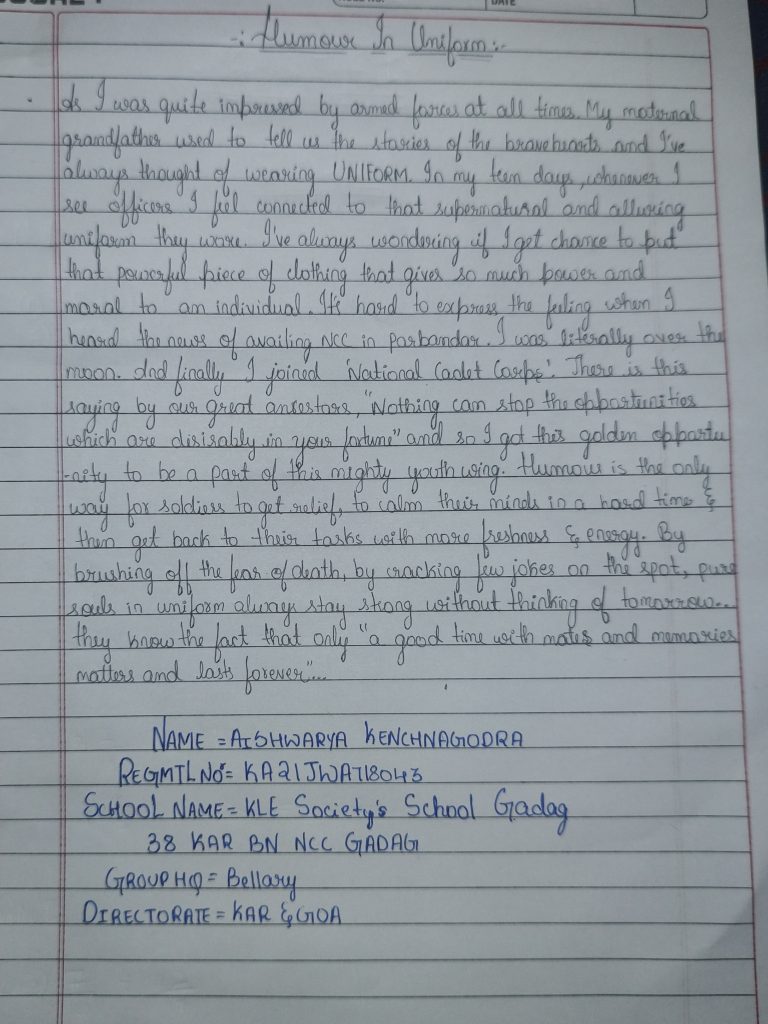 DATE
-: Humour In Uniform:-
As I was quite impressed by armed forces at all times. My maternal
grandfather used to tell us the stories of the bravehearts and I've
always thought of wearing UNIFORM. In my teen days, whenever I
see officers I feel connected to that supernatural and alluring
uniform they wore. I've always wondering if I get chance to put
that powerful piece of clothing that gives so much power and
moral to an individual. It's hard to express the feeling when I
heard the news of availing NCC in Porbandar. I was literally over the
moon. And finally I joined 'National Cadet Corps'. There is this
saying by our great ancestors, "Nothing can stop the opportunities
which are disisably in your fortune" and so I got this golden opportu
-nity to be a part of this mighty youth wing. Humour is the only
way for soldiers to get relief, to calm their minds in a hard time &
then get back to their tasks with more freshness & energy. By
brushing off the fear of death, by cracking few jokes on the spot, pure
souls in uniform always stay strong without thinking of tomorrow...
they know the fact that only "a good time with mates and memories
matters and lasts forever"...
NAME = AISHWARYA KENCHNAGODRA
REGMTL No = KA21JWA718043
SCHOOL NAME = KLE Society's School Gadag
38 KAR BN NCC GADAG
GROUP HQ = Bellary
DIRECTORATE = KAR & GOA